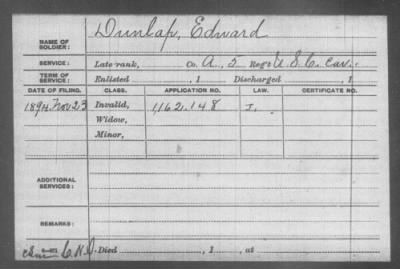 NAME OF SOLDIER: Dunlap, Edward
SERVICE: Late rank, Co. A, 5 Reg't U.S.C. Cav.
TERM OF SERVICE: Enlisted , 1 Discharged , 1
DATE OF FILING. CLASS. APPLICATION NO. LAW. CERTIFICATE NO.
1894. Nov 23 Invalid, 1,162.148
Widow,
Minor,
ADDITIONAL SERVICES:
REMARKS:
Died , 1 , at